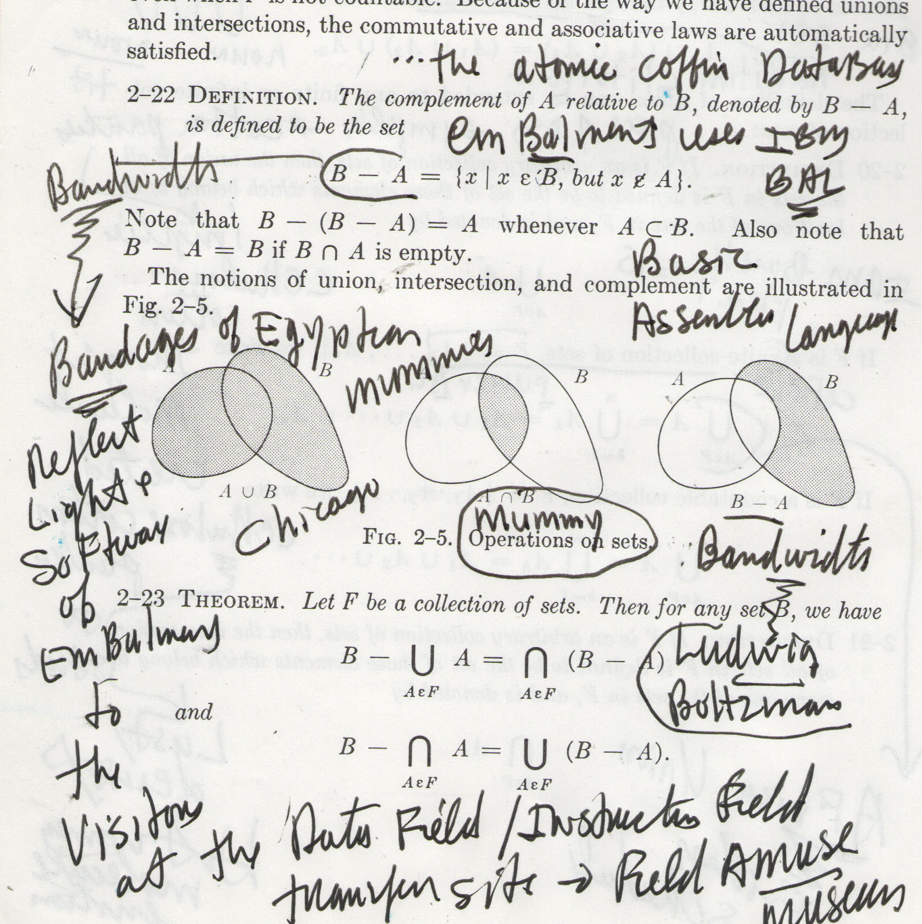 even when F is not countable. Because of the way we have defined unions
and intersections, the commutative and associative laws are automatically
satisfied.
...the atomic coffin DataBay
2–22 DEFINITION. The complement of A relative to B, denoted by B − A,
is defined to be the set
EmBalment uses IBM
Bandwidth
B − A = {x | x ε B, but x ɇ A}.
BAL
Note that B − (B − A) = A whenever A ⊂ B. Also note that
B − A = B if B ∩ A is empty.
Basic
The notions of union, intersection, and complement are illustrated in
Fig. 2–5.
Assembler Language
Bandages of Egyptian
mummies
A B
B
A B
Reflect
Light &
Software
of
EmBalming
to
the
Visitors
at the Data Field / Instruction Field
transfer site → Field Amuse
museum
A ∪ B
A ∩ B
B − A
Chicago
Mummy
FIG. 2–5. Operations on sets.
Bandwidth
2–23 THEOREM. Let F be a collection of sets. Then for any set B, we have
B − ⋃ A = ⋂ (B − A)
AεF AεF
Ludwig
Boltzman
and
B − ⋂ A = ⋃ (B − A).
AεF AεF